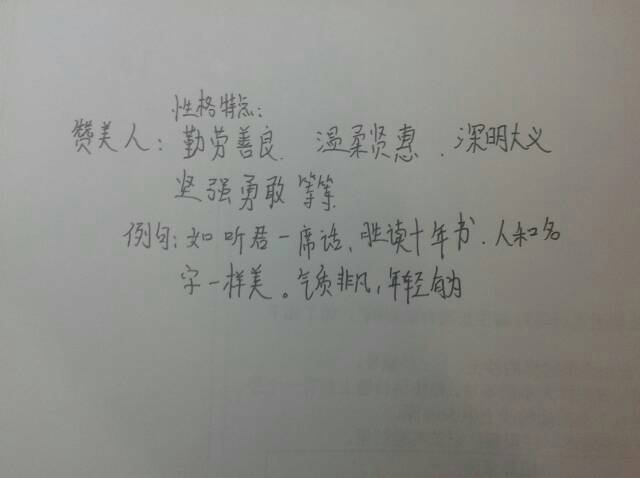 性格特点：
赞美人：勤劳善良．温柔贤惠．深明大义
坚强勇敢 等等
例句：如 听君一席话，胜读十年书．人和名
字一样美。气质非凡，年轻有为